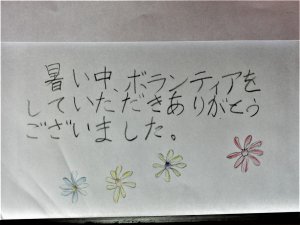 暑い中、ボランティアを
していただきありがとう
ございました。